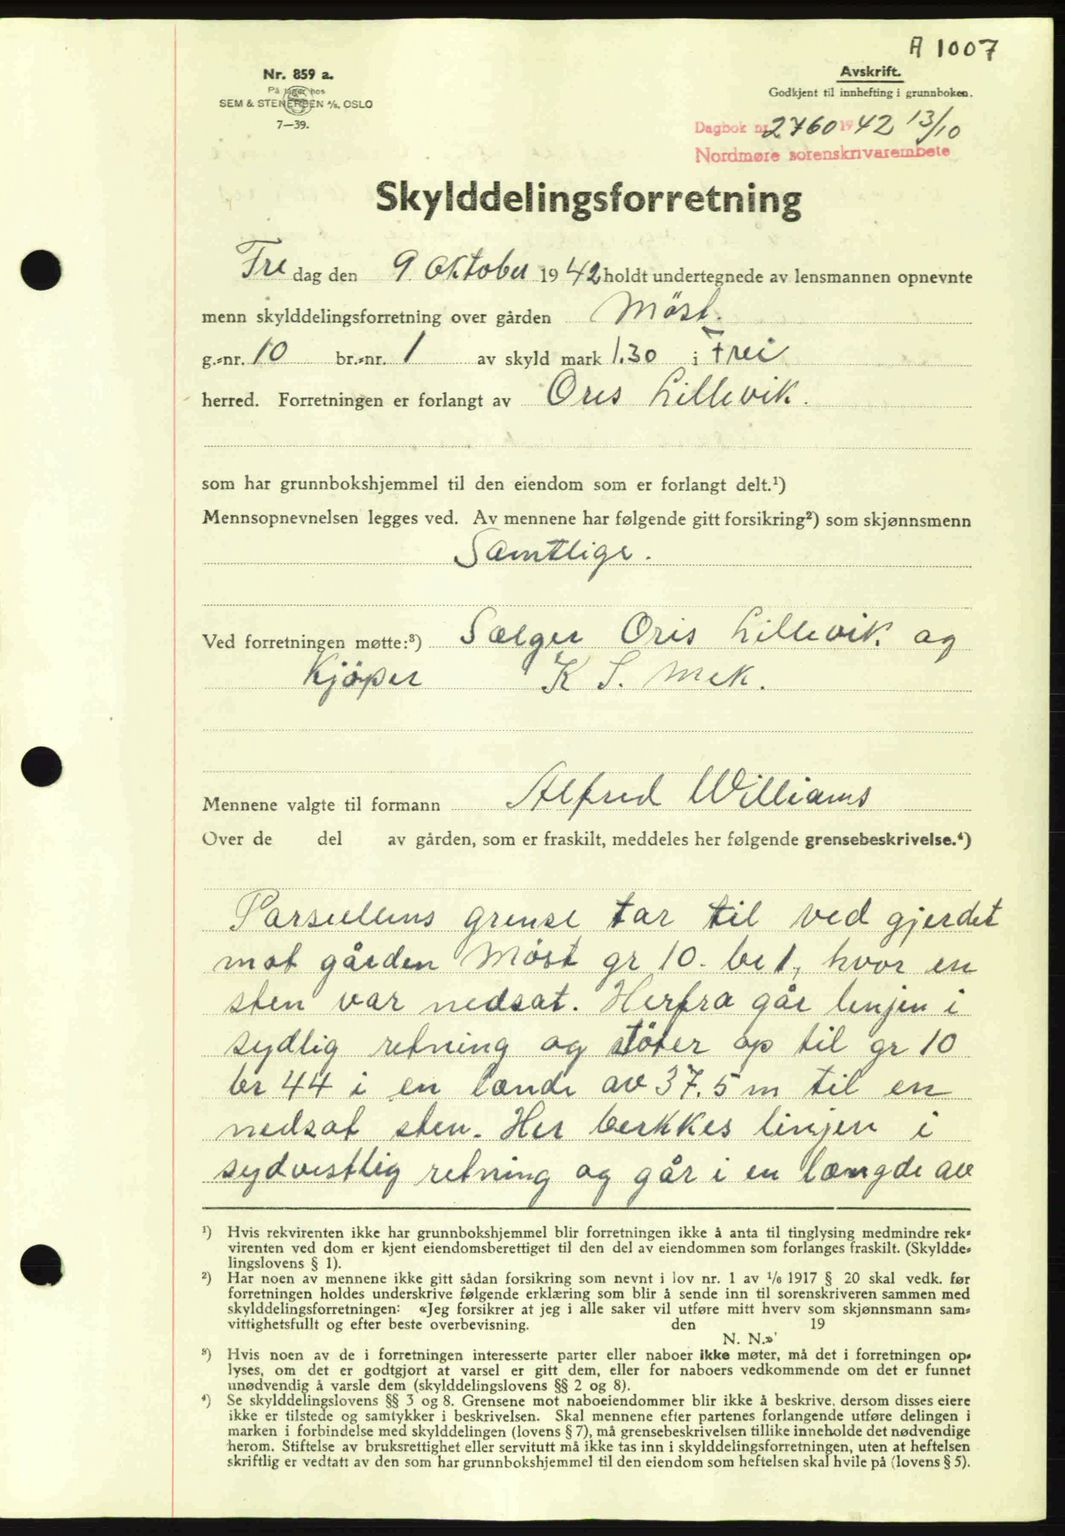 A 1007
Nr. 859 a.
På lager hos
SEM & STENERSEN A/S, OSLO
7—39.
Avskrift.
Godkjent til innhefting i grunnboken.
Dagbok nr 2760 1942 13/10
Nordmøre sorenskrivarembete
Skylddelingsforretning
Fre dag den 9. Oktober 1942 holdt undertegnede av lensmannen opnevnte
menn skylddelingsforretning over gården Möst.
g.-nr. 10 br.-nr. 1 av skyld mark 1.30 i Frei
herred. Forretningen er forlangt av Oris Lillevik.
som har grunnbokshjemmel til den eiendom som er forlangt delt.¹)
Mennsopnevnelsen legges ved. Av mennene har følgende gitt forsikring²) som skjønnsmenn
Samtlige.
Ved forretningen møtte:³) Sælger Oris Lillevik og
Kjöper K S. Mek.
Mennene valgte til formann Alfred Williams
Over de del av gården, som er fraskilt, meddeles her følgende grensebeskrivelse.⁴)
Parsellens grense tar til ved gjerdet
mot gården Möst gr 10. br 1, hvor en
sten var nedsat. Herfra går linjen i
sydlig retning og stöter op til gr 10
br 44 i en lændi av 37.5 m til en
nedsat sten. Her brekkes linjen i
sydvestlig retning og går i en længde av
¹) Hvis rekvirenten ikke har grunnbokshjemmel blir forretningen ikke å anta til tinglysing medmindre rek-
virenten ved dom er kjent eiendomsberettiget til den del av eiendommen som forlanges fraskilt. (Skyldde-
lingslovens § 1).
²) Har noen av mennene ikke gitt sådan forsikring som nevnt i lov nr. 1 av 1/6 1917 § 20 skal vedk. før
forretningen holdes underskrive følgende erklæring som blir å sende inn til sorenskriveren sammen med
skylddelingsforretningen: «Jeg forsikrer at jeg i alle saker vil utføre mitt hverv som skjønnsmann sam-
vittighetsfullt og efter beste overbevisning. den 19
N. N.»
³) Hvis noen av de i forretningen interesserte parter eller naboer ikke møter, må det i forretningen op-
lyses, om det er godtgjort at varsel er gitt dem, eller for naboers vedkommende om det er funnet
unødvendig å varsle dem (skylddelingslovens §§ 2 og 8).
⁴) Se skylddelingslovens §§ 3 og 8. Grensene mot naboeiendommer blir ikke å beskrive. dersom disses eiere
ikke er tilstede og samtykker i beskrivelsen. Skal mennene efter partenes forlangende utføre delingen i
marken i forbindelse med skylddelingen (lovens § 7), må grensebeskrivelsen tillike inneholde det nødvendige
herom. Stiftelse av bruksrettighet eller servitutt må ikke tas inn i skylddelingsforretningen, uten at heftelsen
skriftlig er vedtatt av den som har grunnbokshjemmel til den eiendom som heftelsen skal hvile på (lovens § 5).